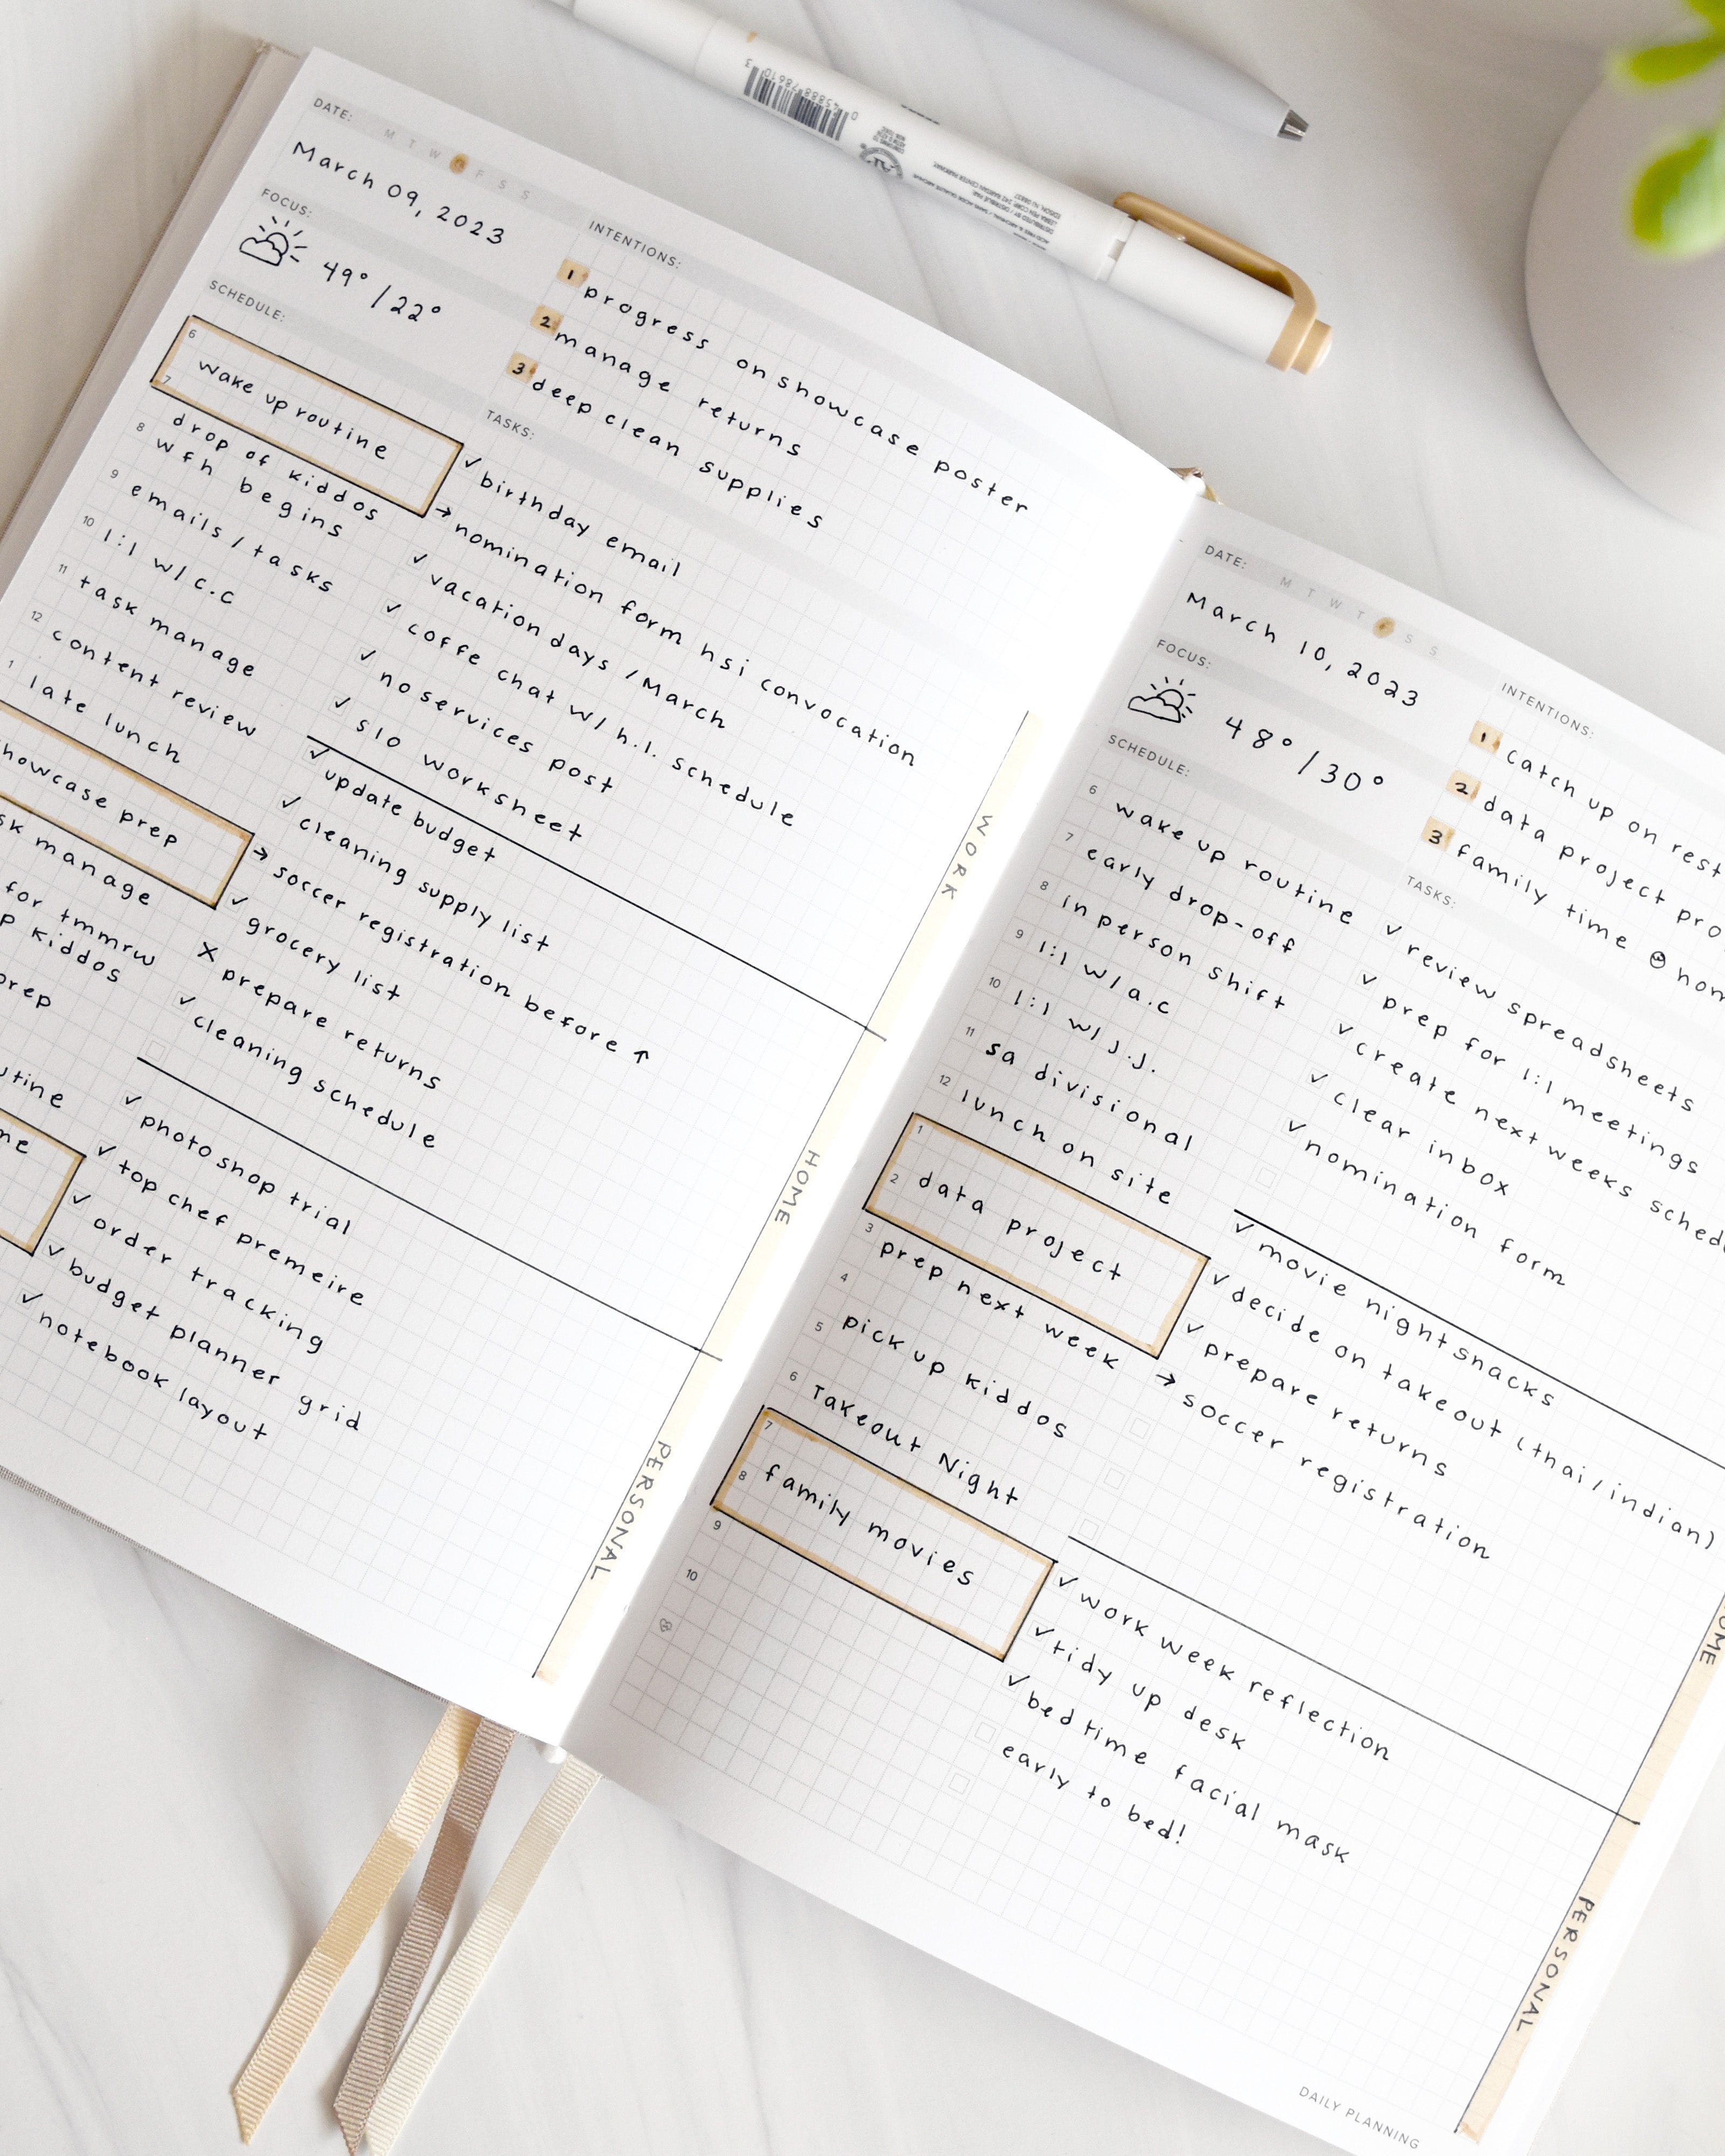 DATE: M T W T F S S
March 09, 2023
FOCUS:
49° / 22°
INTENTIONS:
1 progress on showcase poster
2 manage returns
3 deep clean supplies
SCHEDULE:
6
wake up routine
7
drop of kiddos
8 wfh begins
9 emails / tasks
10 1:1 w/ c.c
11 task manage
12 content review
1 late lunch
howcase prep
sk manage
for tmmrw
p kiddos
prep
utine
me
TASKS:
✓ birthday email
→ nomination form hsi convocation
✓ vacation days / March
✓ coffe chat w/ h.l. schedule
✓ no services post
✓ slo worksheet
✓ update budget
✓ cleaning supply list
→ soccer registration before ↑
✓ grocery list
X prepare returns
✓ cleaning schedule
✓ photo shop trial
✓ top chef premeire
✓ order tracking
✓ budget planner grid
✓ notebook layout
WORK
HOME
PERSONAL
DATE: M T W T F S S
March 10, 2023
FOCUS:
48° / 30°
INTENTIONS:
1 Catch up on rest
2 data project pro
3 family time hom
SCHEDULE:
6 wake up routine
7 early drop-off
8 in person shift
9 1:1 w/ a.c
10 1:1 w/ J.J.
11 sa divisional
12 lunch on site
1
2 data project
3 prep next week
4
5 pick up kiddos
6 Takeout Night
7
8 family movies
9
10
TASKS:
✓ review spreadsheets
✓ prep for 1:1 meetings
✓ create next weeks schedu
✓ clear inbox
✓ nomination form
✓ movie night snacks
✓ decide on takeout (thai / indian)
✓ prepare returns
→ soccer registration
✓ work week reflection
✓ tidy up desk
✓ bedtime facial mask
early to bed!
OME
PERSONAL
DAILY PLANNING